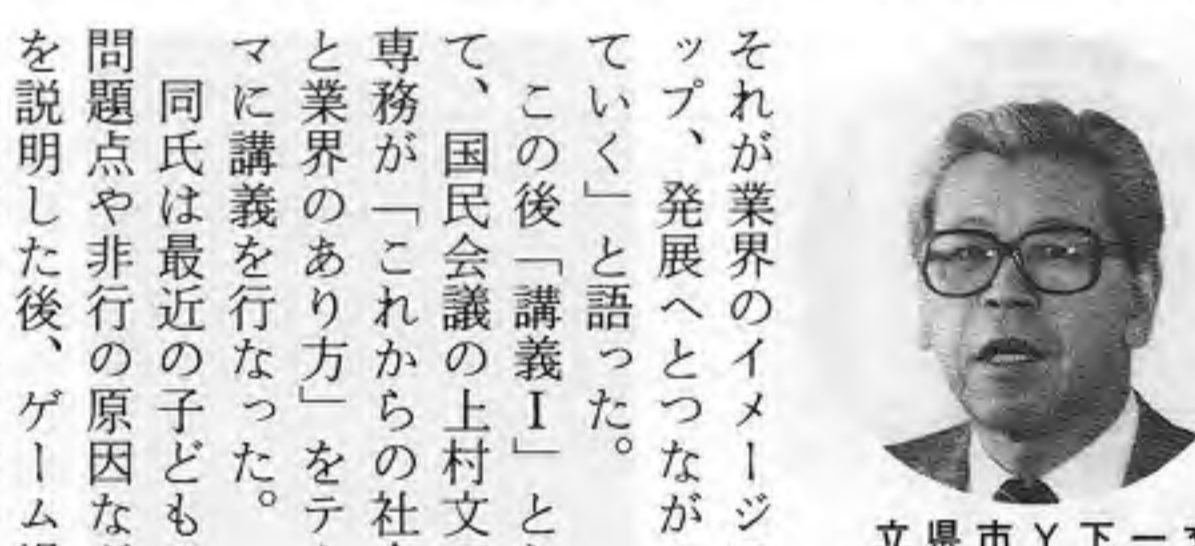 それが業界のイメージ
ップ、発展へとつなが
ていく」と語った。
この後「講義Ⅰ」と
て、国民会議の上村文
専務が「これからの社
と業界のあり方」をテ
マに講義を行なった。
同氏は最近の子ども
問題点や非行の原因な
を説明した後、ゲーム